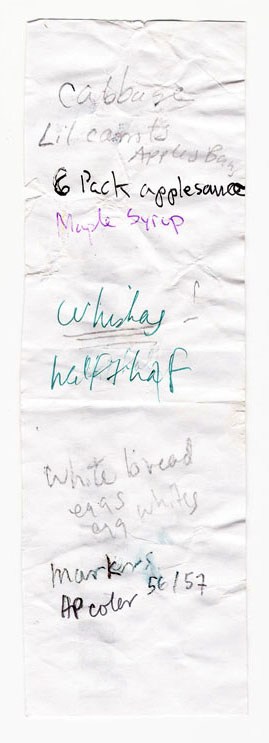 cabbage
Lil carrots
Apples Bag
6 Pack applesauce
Maple Syrup
whiskey !
half + half
white bread
eggs whites
egg
markers
AP color 56/57